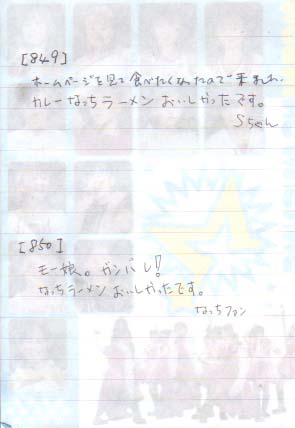 [849]
ホームページを見て食べたくなったので来ました。
カレーなっちラーメンおいしかったです。
Sちゃん
[850]
モー娘。ガンバレ!
なっちラーメンおいしかったです。
なっちファン